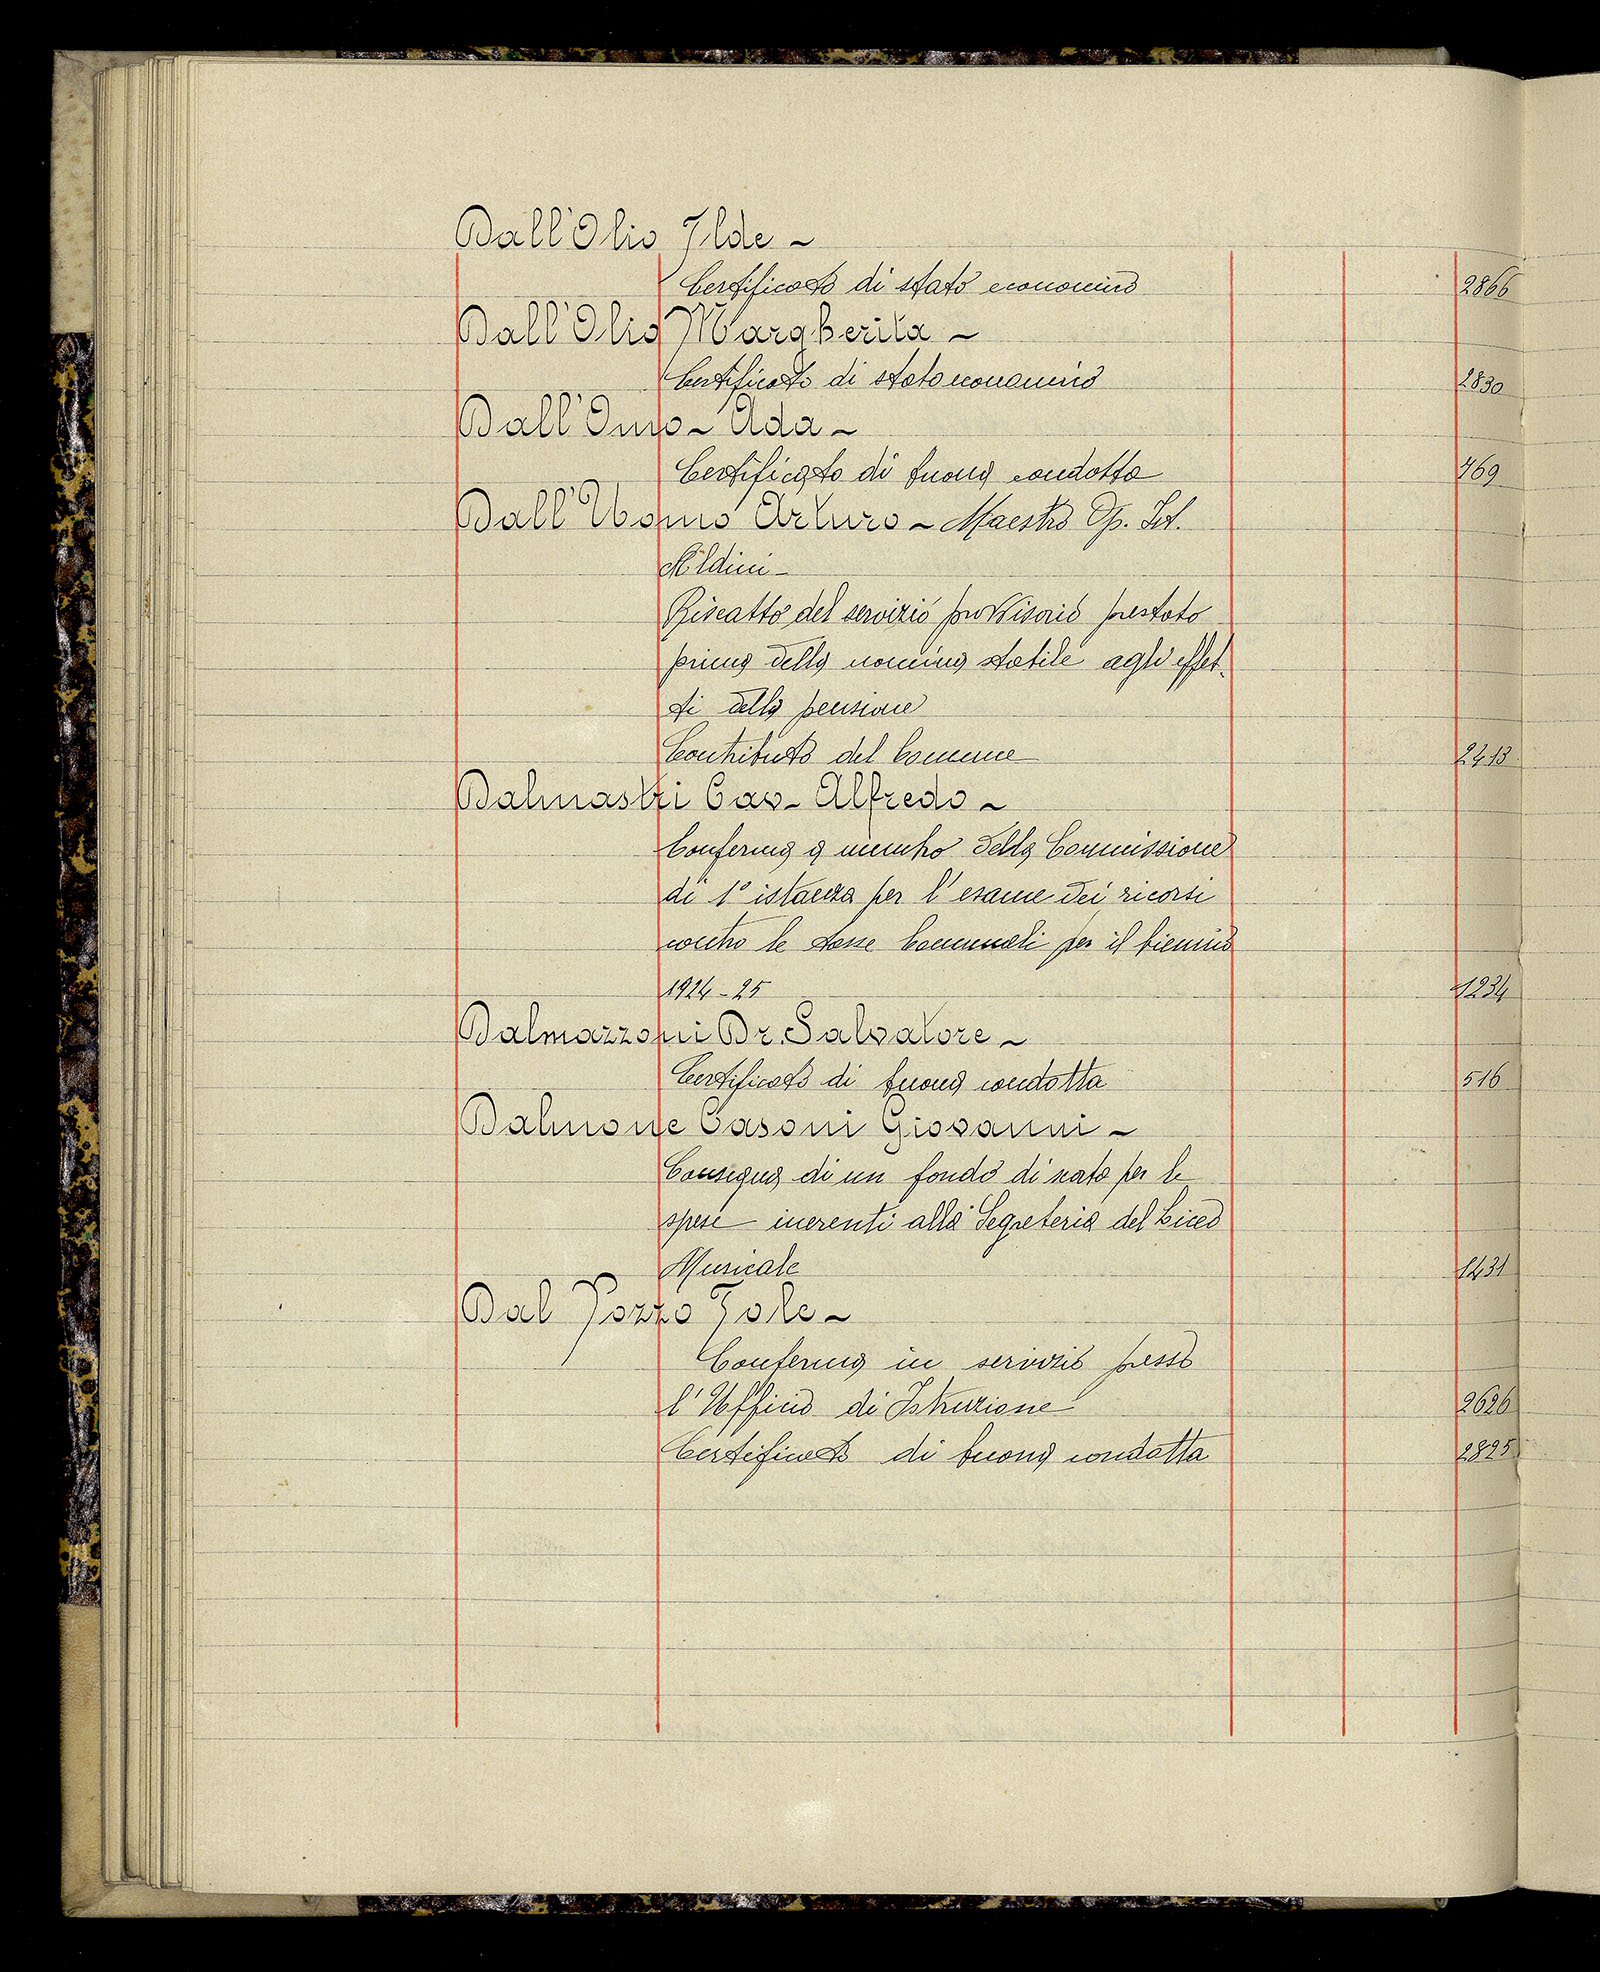 Dall'Olio Ilde ~
Certificato di stato economico 2866
Dall'Olio Margherita ~
Certificato di stato economico 2830
Dall'Omo ~ Ada ~
Certificato di buona condotta 769
Dall'Uomo Arturo ~ Maestro Op. Ist.
Aldini -
Riscatto del servizio provvisorio prestato
prima della nomina stabile agli effet-
ti della pensione
Contributo del Comune 2413
Dalmastri Cav- Alfredo ~
Conferma a membro della Commissione
di 1° istanza per l'esame dei ricorsi
contro le tasse Comunali per il biennio
1924-25 1234
Dalmazzoni Dr. Salvatore ~
Certificato di buona condotta 516
Dalmone Casoni Giovanni ~
Consegna di un fondo di scorta per le
spese inerenti alla Segreteria del Liceo
Musicale 1431
Dal Pozzo Jole ~
Conferma in servizio presso
l'Ufficio di Istruzione 2626
Certificato di buona condotta 2825